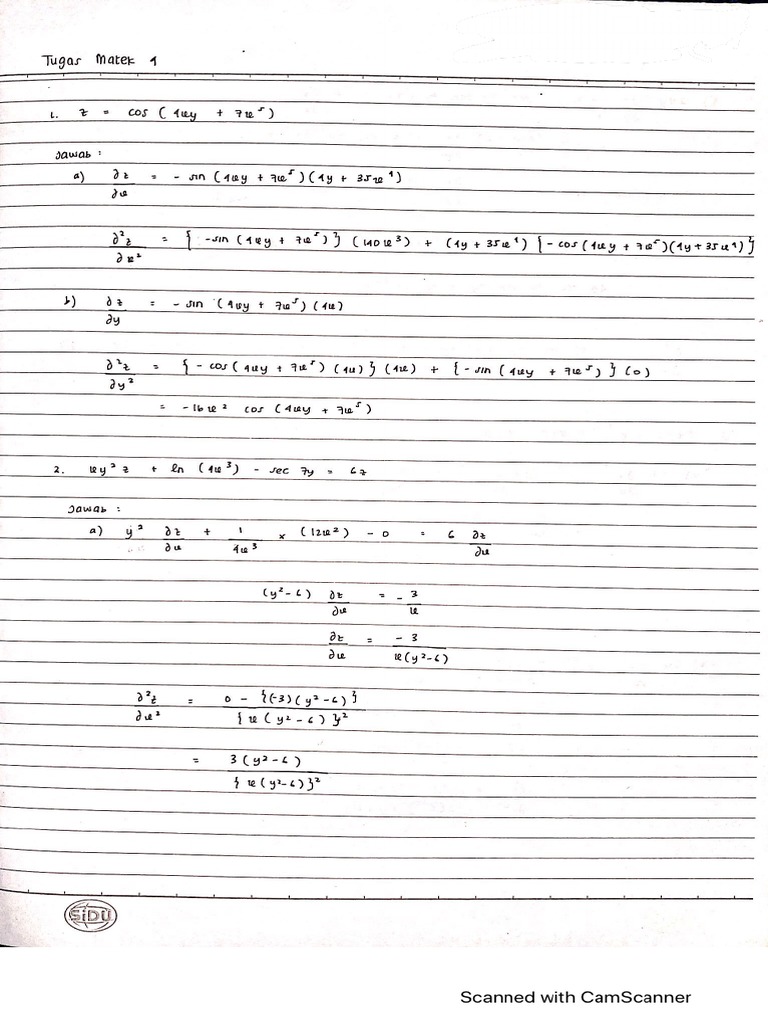 Tugas Matek 4
1. z = cos (4xy + 7x⁵)
Jawab :
a) ∂z/∂x = - sin (4xy + 7x⁵)(4y + 35x⁴)
∂²z/∂x² = { -sin (4xy + 7x⁵)} (140x³) + (4y + 35x⁴) {- cos (4xy + 7x⁵)(4y + 35x⁴)}
b) ∂z/∂y = - sin (4xy + 7x⁵) (4x)
∂²z/∂y² = {- cos (4xy + 7x⁵) (4x)} (4x) + {- sin (4xy + 7x⁵) } (0)
= -16x² cos (4xy + 7x⁵)
2. xy² z + ln (4x³) - sec 7y = 6z
Jawab :
a) y² ∂z/∂x + 1/4x³ × (12x²) - 0 = 6 ∂z/∂x
(y² - 6) ∂z/∂x = - 3/x
∂z/∂x = - 3/x(y² - 6)
∂²z/∂x² = 0 - {(-3)(y² - 6)}/{x (y² - 6)}²
= 3 (y² - 6)/{x (y² - 6)}²
SiDU
Scanned with CamScanner